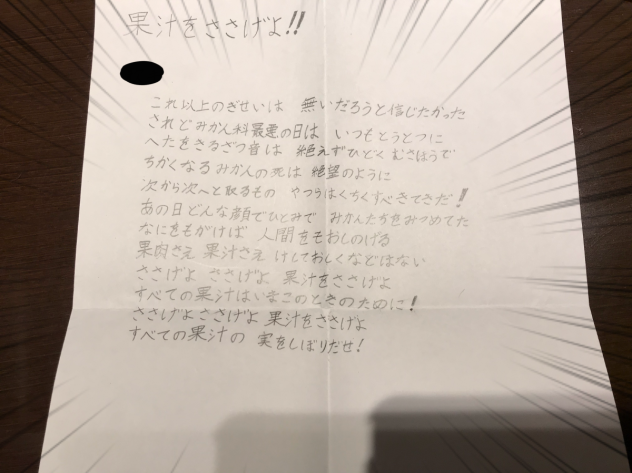 果汁をささげよ!!
これ以上のぎせいは 無いだろうと信じたかった
されどみかん科最悪の日は いつもとうとつに
へたをきるざつ音は 絶えずひどく むさぼうで
ちかくなるみかんの死は 絶望のように
次から次へと取るもの やつらはくちくすべきてきだ!
あの日どんな顔でひとみで みかんたちをみつめてた
なにをもがけば 人間をもおしのける
果肉さえ 果汁さえ けしておしくなどはない
ささげよ ささげよ 果汁をささげよ
すべての果汁はいまこのときのために!
ささげよささげよ 果汁をささげよ
すべての果汁の 実をしぼりだせ!